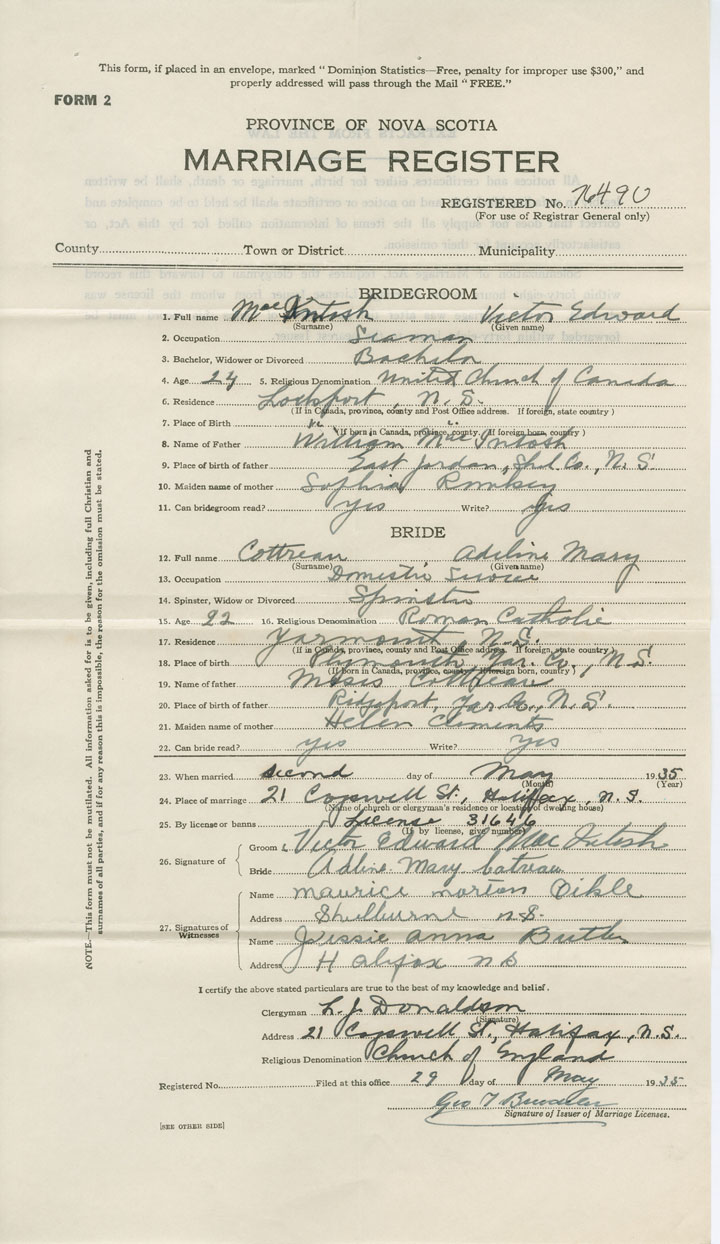 This form, if placed in an envelope, marked "Dominion Statistics—Free, penalty for improper use $300," and
properly addressed will pass through the Mail "FREE."
FORM 2
PROVINCE OF NOVA SCOTIA
MARRIAGE REGISTER
REGISTERED No. 7649U
(For use of Registrar General only)
County Town or District Municipality
BRIDEGROOM
1. Full name MacIntosh Victor Edward
(Surname) (Given name)
2. Occupation Seaman
3. Bachelor, Widower or Divorced Bachelor
4. Age 24 5. Religious Denomination United Church of Canada
6. Residence Lockport, N.S.
(If in Canada, province, county and Post Office address. If foreign, state country)
7. Place of Birth " "
(If born in Canada, province, county. If foreign born, country)
8. Name of Father William MacIntosh
9. Place of birth of father East Jordan, Shel. Co., N.S.
10. Maiden name of mother Sophia
11. Can bridegroom read? yes Write? yes
BRIDE
12. Full name Cottreau Adeline Mary
(Surname) (Given name)
13. Occupation Domestic Service
14. Spinster, Widow or Divorced Spinster
15. Age 22 16. Religious Denomination Roman Catholic
17. Residence Yarmouth N.S.
(If in Canada, province, county and Post Office address. If foreign, state country)
18. Place of birth Plymouth, Yar. Co., N.S.
(If born in Canada, province, county. If foreign born, country)
19. Name of father Moses Cottreau
20. Place of birth of father Ridgeport, Yar. Co., N.S.
21. Maiden name of mother Helen Clements
22. Can bride read? yes Write? yes
23. When married second day of May 1935
(Month) (Year)
24. Place of marriage 21 Cogswell St., Halifax, N.S.
(Name of church or clergyman's residence or location of dwelling house)
25. By license or banns License 31646
(If by license, give number)
26. Signature of Groom Victor Edward MacIntosh
Bride Adline Mary Cotreau
27. Signatures of Witnesses Name Maurice Morton
Address Shelburne N.S.
Name Jessie Anna Butler
Address Halifax NS
I certify the above stated particulars are true to the best of my knowledge and belief.
Clergyman L. J. Donaldson
(Signature)
Address 21 Cogswell St., Halifax, N.S.
Religious Denomination Church of England
Registered No. Filed at this office 29 day of May 1935
Geo T
Signature of Issuer of Marriage Licenses.
[SEE OTHER SIDE]
NOTE.—This form must not be mutilated. All information asked for is to be given, including full Christian and
surnames of all parties, and if for any reason this is impossible, the reason for the omission must be stated.